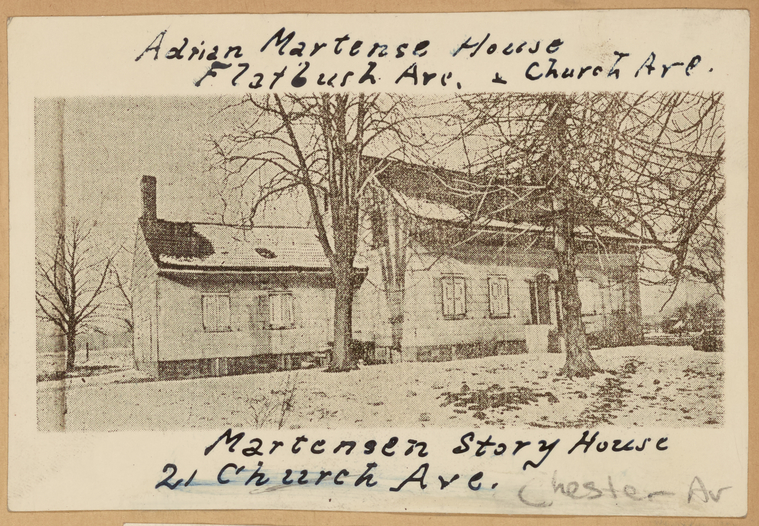 Adrian Martense House
Flatbush Ave. & Church Ave.
Martensen Story House
21 Church Ave.
Chester Av